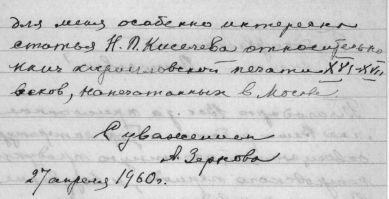 для меня особенно интересна
статья Н. П. Киселева относительно
книг кирилловской печати XVI-XVII
веков, напечатанных в Москве
С уважением
А. Зернова
27 апреля 1960 г.